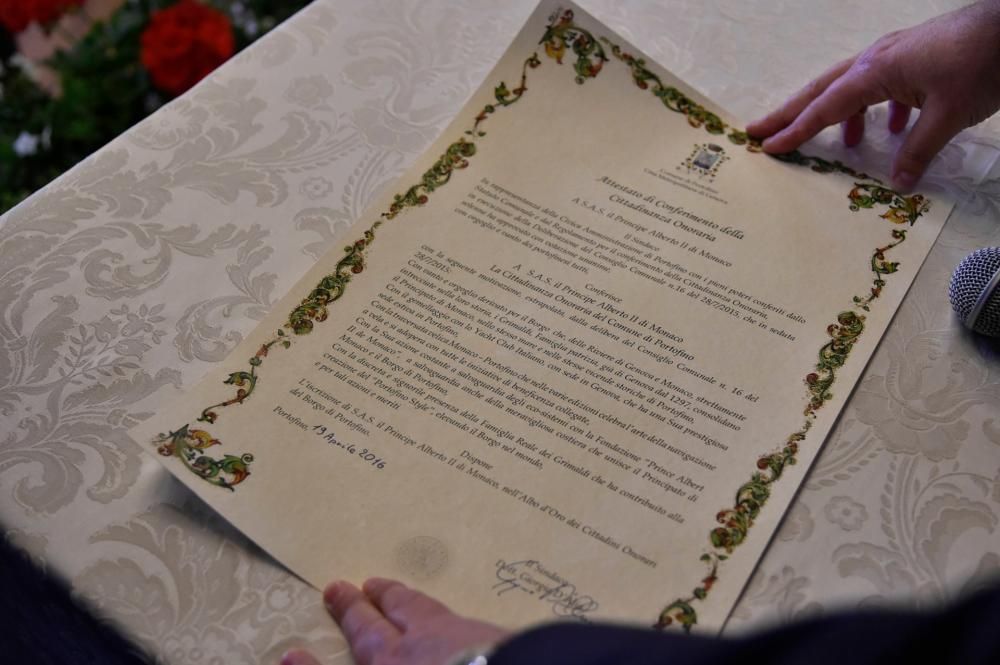 Comune di Portofino
Città Metropolitana di Genova
Attestato di Conferimento della
Cittadinanza Onoraria
A S.A.S. il Principe Alberto II di Monaco
Il Sindaco
In rappresentanza della Civica Amministrazione di Portofino con i pieni poteri conferiti dallo
Statuto Comunale e dal Regolamento per il conferimento della Cittadinanza Onoraria,
in esecuzione della Deliberazione del Consiglio Comunale n.16 del 28/7/2015, che in seduta
solenne ha approvato con votazione unanime,
con orgoglio e vanto dei portofinesi tutti,
Conferisce
A S.A.S. il Principe Alberto II di Monaco
La Cittadinanza Onoraria del Comune di Portofino
con la seguente motivazione, estrapolata dalla delibera del Consiglio Comunale n. 16 del
28/7/2015.
Con vanto e orgoglio derivato per il Borgo che, delle Riviere di Genova e Monaco, strettamente
intrecciate nella loro storia, i Grimaldi, Famiglia patrizia, già di Genova dal 1297, consolidano
il Principato di Monaco, nello stesso mare e nelle stesse vicende storiche di Portofino,
Con il gemellaggio con lo Yacht Club Italiano, con sede in Genova, che ha una Sua prestigiosa
sede estiva in Portofino,
Con la traversata velica Monaco - Portofino che nelle varie edizioni celebra l'arte della navigazione
a vela e si adopera con tutte le iniziative di beneficenza collegate,
Con la Sua azione costante a salvaguardia degli eco-sistemi con la Fondazione "Prince Albert
II de Monaco", a salvaguardia anche della meravigliosa costiera che unisce il Principato di
Monaco e il Borgo di Portofino,
Con la discreta e signorile presenza della Famiglia Reale dei Grimaldi che ha contribuito alla
creazione del "Portofino Style" elevando il Borgo nel mondo,
e per tali azioni e meriti
Dispone
L'iscrizione di S.A.S. il Principe Alberto II di Monaco, nell'Albo d'Oro dei Cittadini Onorari
del Borgo di Portofino.
Portofino, 19 Aprile 2016
Il Sindaco
Dott. Giorgio